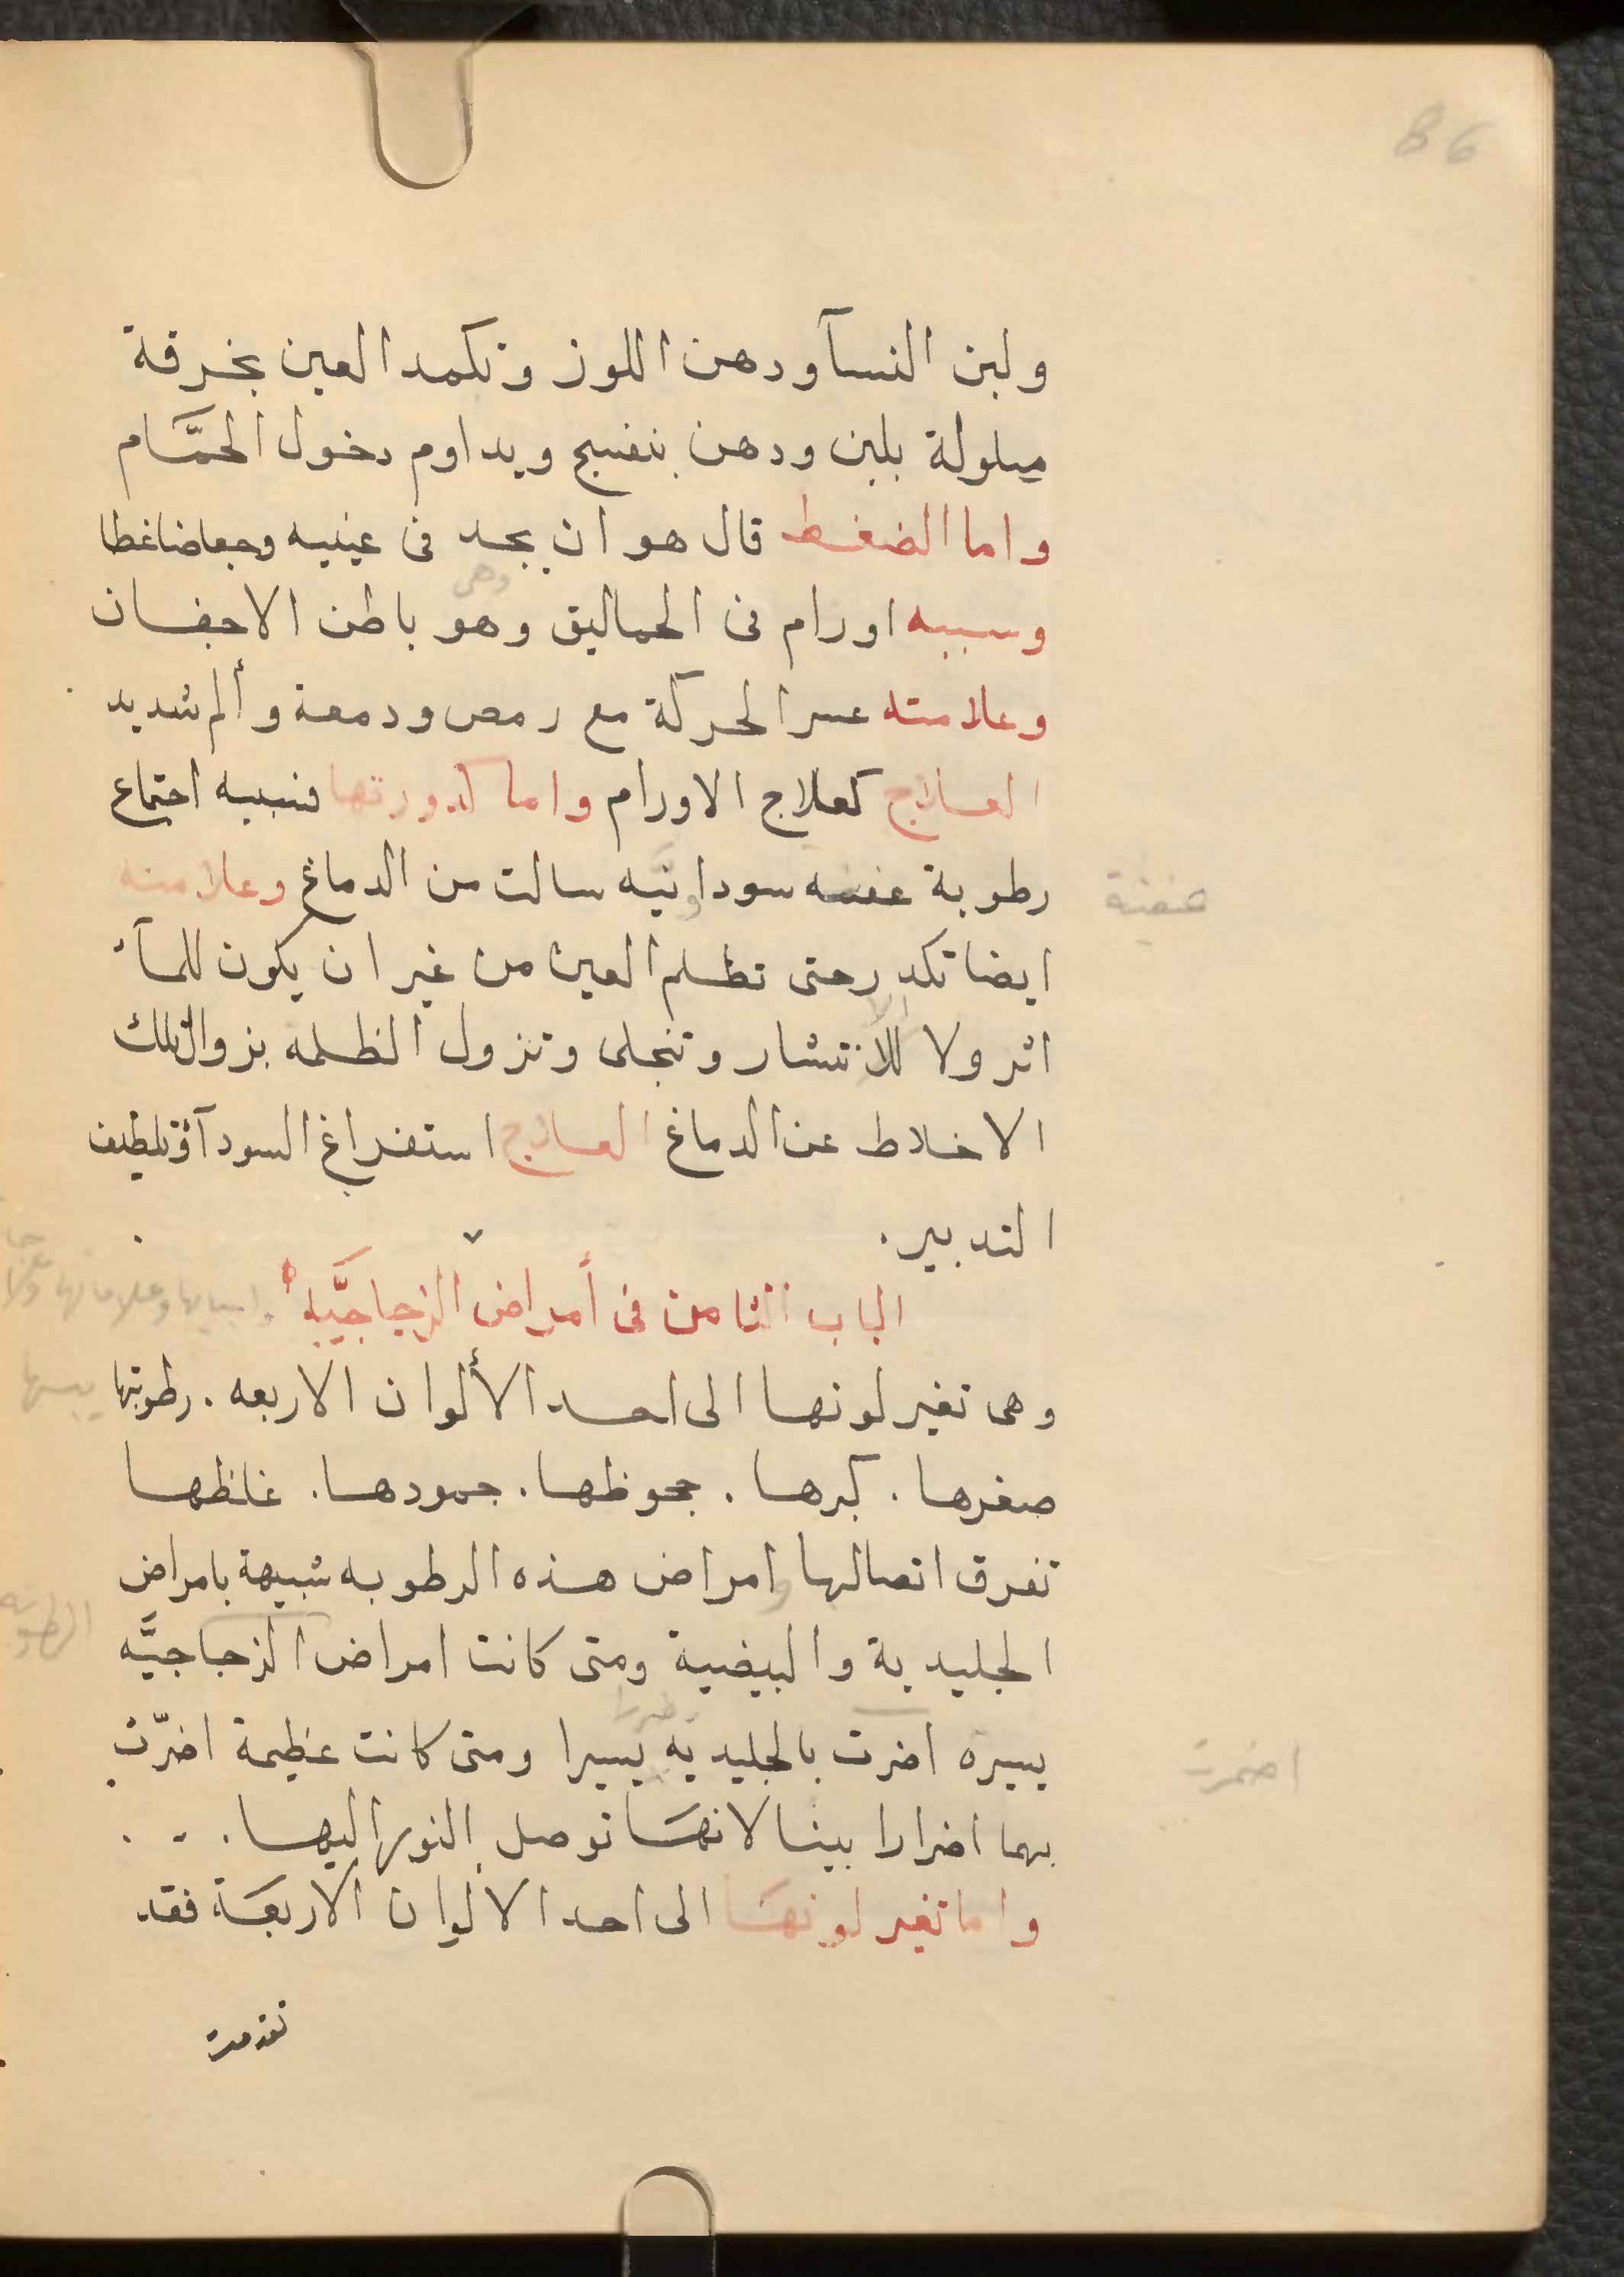 86
ولبن النسآ ودهن اللوز وتكمد العين بخرقة
مبلولة بلبن ودهن بنفسج ويداوم دخول الحمَّام
واما الضغط قال هو ان يجد فى عينيه وجعا ضاغطا
وهى
وسببه اورام فى الحماليق وهو باطن الاجفان
وعلامته عسر الحركة مع رمص ودمعة وألم شديد
العلاج كعلاج الاورام واما كدورتها فسببه اجتماع
رطوبة عفنه سودانيه سالت من الدماغ وعلامته
ايضا تكدر حتى تظلم العين من غير ان يكون للمآ
اثر ولا للانتشار وتنجلى وتزول الظلمه بزوال تلك
الاخلاط عن الدماغ العلاج استفراغ السودآ وتلطيف
التدبير.
الباب الثامن فى أمراض الزجاجيَّه اسبابها وعلاماتها
وهى تغير لونها الى احد الألوان الاربعه . رطوبتها يبسها
صغرها . كبرها . جحوظها . جمودها . غلظها
تفرق اتصالها امراض هذه الرطوبه شبيهة بامراض
الرطوبه
الجليدية والبيضية ومتى كانت امراض الزجاجيَّه
يسيره اضرت بالجليديه يسيرا ومتى كانت عظيمة اضرّت
اضرت
بهما اضرارا بينا لانهَا توصل النور اليها . . .
واما تغير لونهَا الى احد الالوان الاربعَة فقد
تقدمت